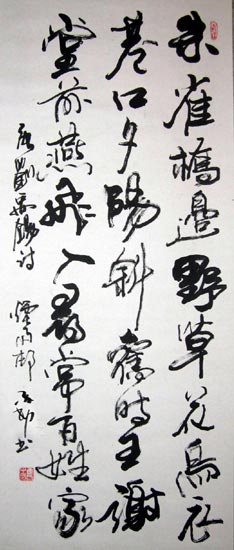 朱雀橋邊野草花烏衣
巷口夕陽斜舊時王謝
堂前燕飛入尋常百姓家
唐劉禹錫詩 書